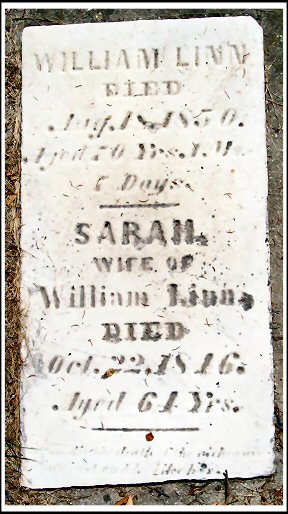 WILLIAM LINN
DIED
Aug. 18, 1850.
Aged 70 Yrs. 1 Mo.
Days.
SARAH.
WIFE OF
William Linn,
DIED
Oct. 22. 1846.
Aged 64 Yrs.